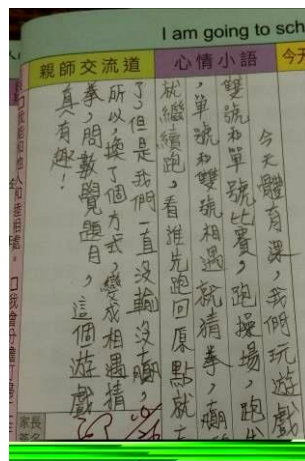 I am going to sch
今天
心情小語
親師交流道
今天體育課,我們玩遊戲
雙號和單號比賽,跑操場,跑
,單號和雙號相遇就猜拳,
就繼續跑,看誰先跑回原點就
了,但是我們一直沒輸沒贏,
所以,換了個方式,變成相遇猜
拳,問數覺題目,這個遊戲
真有趣!
家長
簽名